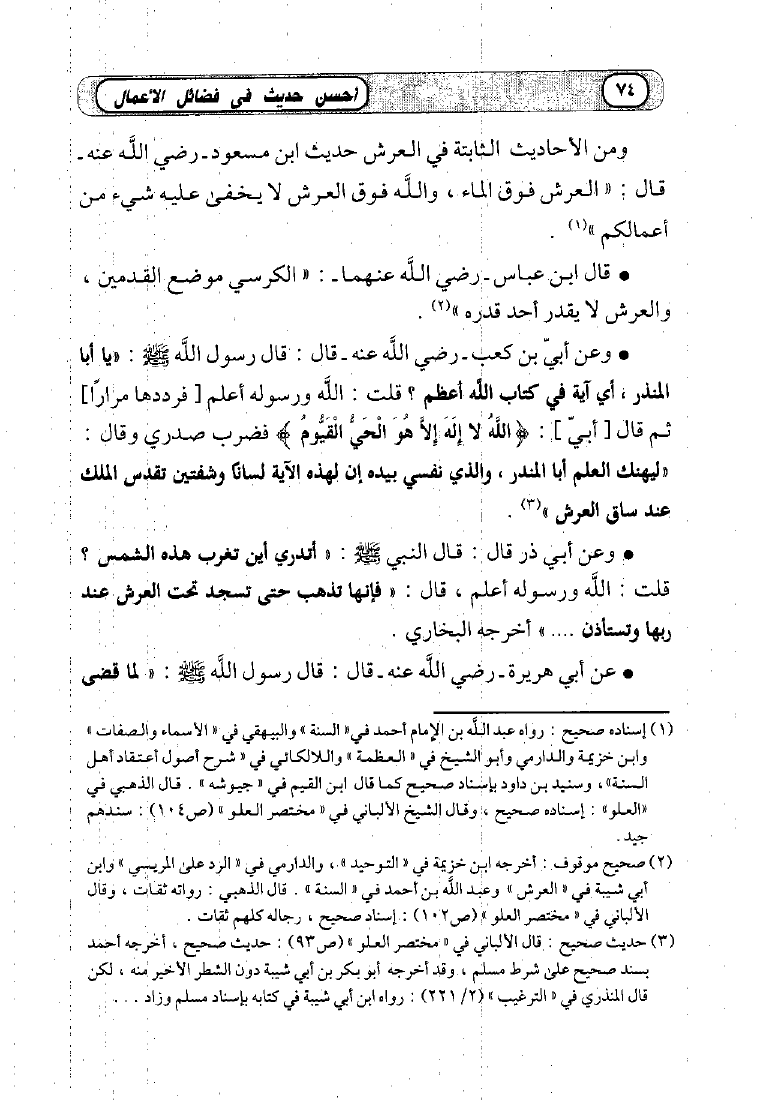 ٧٤
أحسن حديث في فضائل الأعمال
ومن الأحاديث الثابتة في العرش حديث ابن مسعود ـ رضي اللَّه عنه ـ
قال : « العرش فوق الماء ، واللَّه فوق العرش لا يخفىٰ عليه شيء من
أعمالكم »(١) .
● قال ابن عباس ـ رضي اللَّه عنهما ـ : « الكرسي موضع القدمين ،
والعرش لا يقدر أحد قدره »(٢) .
● وعن أبيّ بن كعب ـ رضي اللَّه عنه ـ قال : قال رسول اللَّه ﷺ : «يا أبا
المنذر ، أي آية في كتاب اللَّه أعظم ؟ قلت : اللَّه ورسوله أعلم [ فرددها مرارًا ]
ثم قال [ أبيّ ] : ﴿ اللَّهُ لا إِلَهَ إِلاَّ هُوَ الْحَيُّ الْقَيُّومُ ﴾ فضرب صدري وقال :
«ليهنك العلم أبا المنذر ، والذي نفسي بيده إن لهذه الآية لسانًا وشفتين تقدس الملك
عند ساق العرش »(٣) .
● وعن أبي ذر قال : قال النبي ﷺ : « أتدري أين تغرب هذه الشمس ؟
قلت : اللَّه ورسوله أعلم ، قال : « فإنها تذهب حتى تسجد تحت العرش عند
ربها وتستأذن .... » أخرجه البخاري .
● عن أبي هريرة ـ رضي اللَّه عنه ـ قال : قال رسول اللَّه ﷺ : « لما قضى
(١) إسناده صحيح : رواه عبد اللَّه بن الإمام أحمد في «السنة » والبيهقي في « الأسماء والصفات »
وابن خزيمة والدارمي وأبو الشيخ في « العظمة » واللالكائي في « شرح أصول أعتقاد أهل
السنة»، وسنيد بن داود بإسناد صحيح كما قال ابن القيم في « جيوشه » . قال الذهبي في
«العلو» : إسناده صحيح ، وقال الشيخ الألباني في « مختصر العلو » (ص١٠٤) : سندهم
جيد .
(٢) صحيح موقوف : أخرجه ابن خزيمة في « التوحيد » ، والدارمي في « الرد على المريسي » وابن
أبي شيبة في « العرش » وعبد اللَّه بن أحمد في « السنة » . قال الذهبي : رواته ثقات ، وقال
الألباني في « مختصر العلو » (ص١٠٢) : إسناد صحيح ، رجاله كلهم ثقات .
(٣) حديث صحيح : قال الألباني في « مختصر العلو » (ص٩٣) : حديث صحيح ، أخرجه أحمد
بسند صحيح على شرط مسلم ، وقد أخرجه أبو بكر بن أبي شيبة دون الشطر الأخير منه ، لكن
قال المنذري في « الترغيب » (٢/ ٢٢١) : رواه ابن أبي شيبة في كتابه بإسناد مسلم وزاد . . .